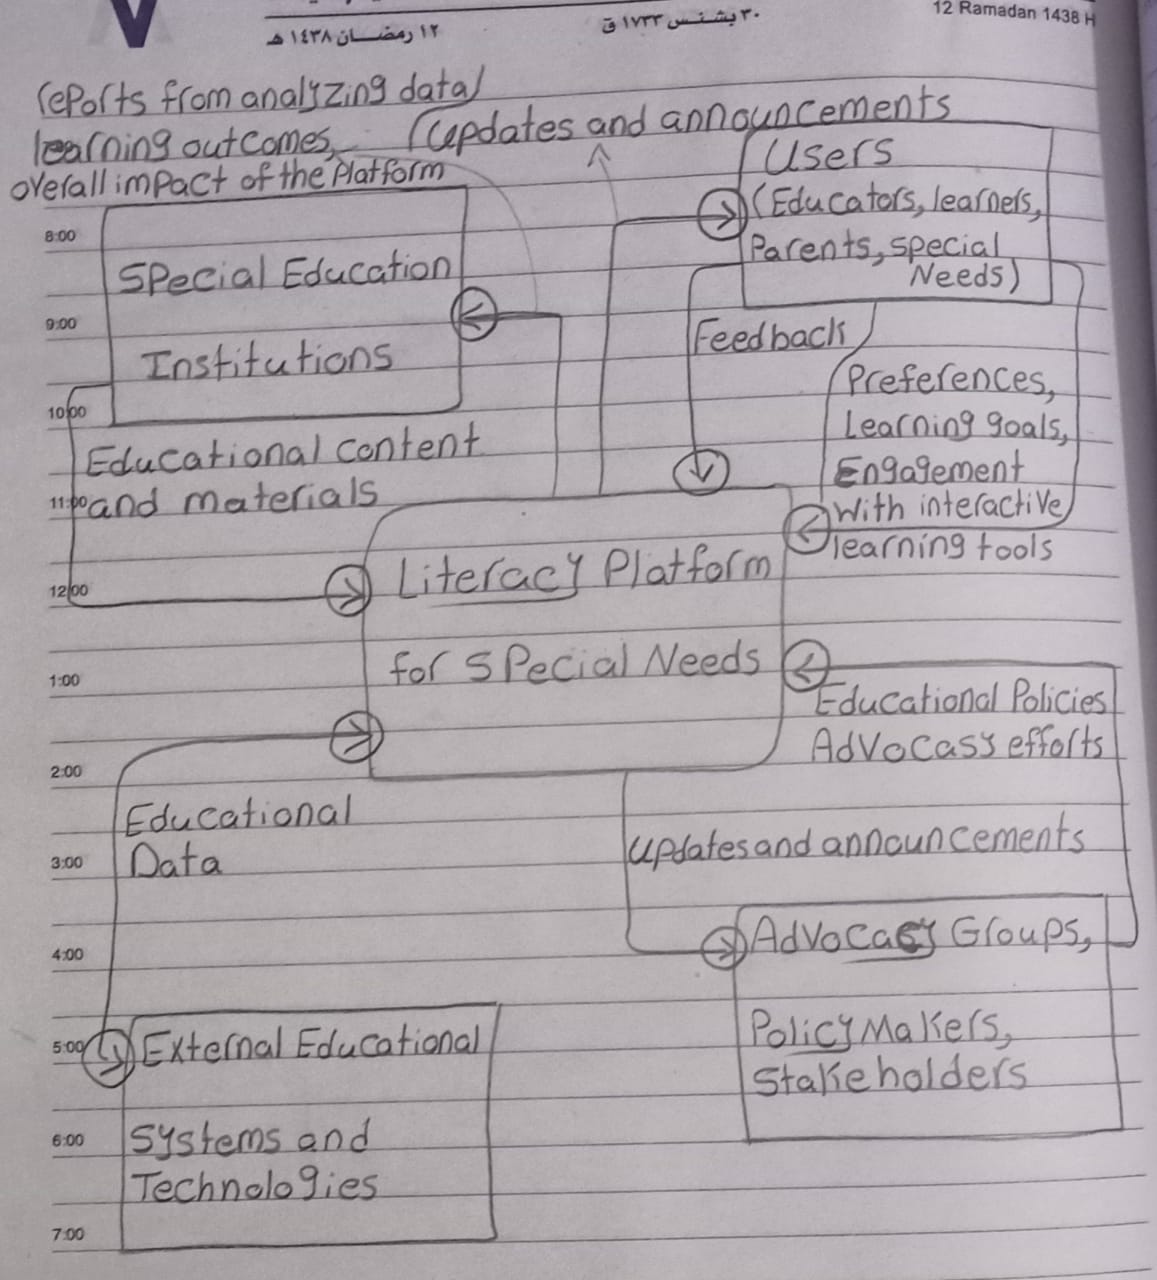 ٧
١٢ رمضـــان ١٤٣٨ هـ
٣٠ بشنــس ١٧٣٣ ق
12 Ramadan 1438 H
reports from analyzing data,
learning outcomes,
overall impact of the Platform
updates and announcements
Users
(Educators, learners,
Parents, special
Needs)
8:00
Special Education
9:00
Institutions
Feedback
Preferences,
Learning goals,
Engagement
With interactive
learning tools
10:00
Educational content
11:00
and materials
12:00
Literacy Platform
for Special Needs
1:00
Educational Policies
AdVocassy efforts
2:00
Educational
Data
3:00
updates and announcements
4:00
Advocacy Groups,
Policy Makers,
Stakeholders
5:00
External Educational
6:00
Systems and
Technologies
7:00